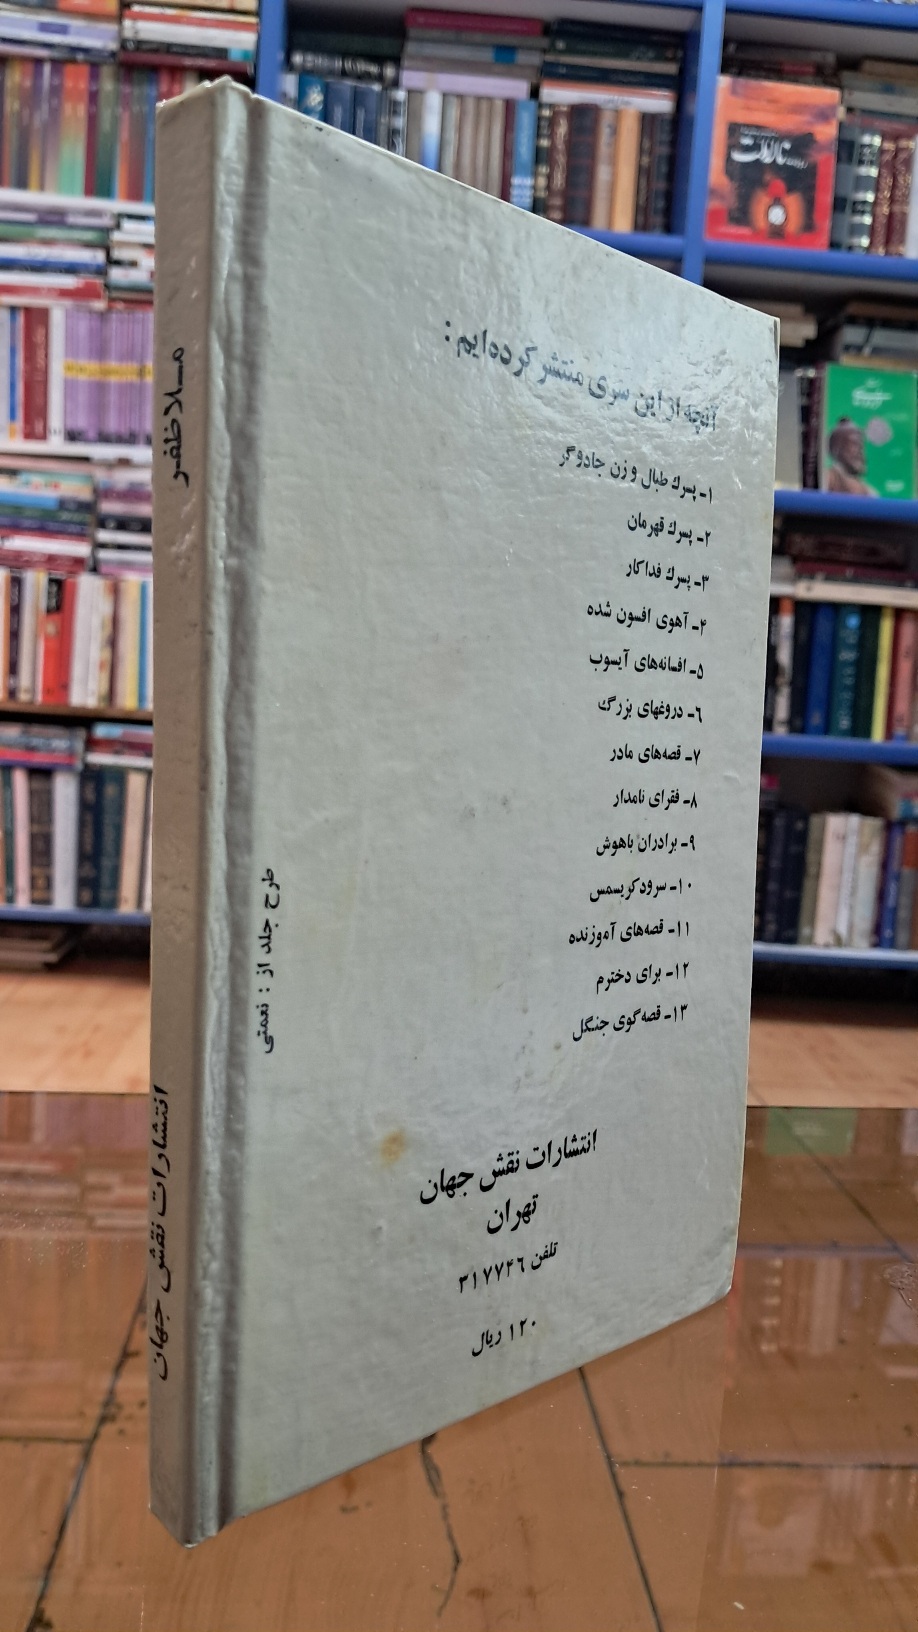 آنچه از این سری منتشر کرده‌ایم :
۱- پسرك طبال و زن جادوگر
۲- پسرك قهرمان
۳- پسرك فداکار
۴- آهوی افسون شده
۵- افسانه‌های آیسوپ
۶- دروغهای بزرگ
۷- قصه‌های مادر
۸- فقرای نامدار
۹- برادران باهوش
۱۰- سرود کریسمس
۱۱- قصه‌های آموزنده
۱۲- برای دخترم
۱۳- قصه‌گوی جنگل
انتشارات نقش جهان
تهران
تلفن ۳۱۷۷۴۶
۱۲۰ ریال
طرح جلد از : نعمتی
مــلاظفــر
انتشارات نقش جهان